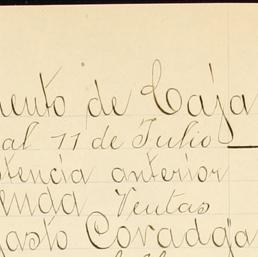 mento de Caja
al 11 de Julio
tencia anterior
enda Ventas
Gasto Covadga